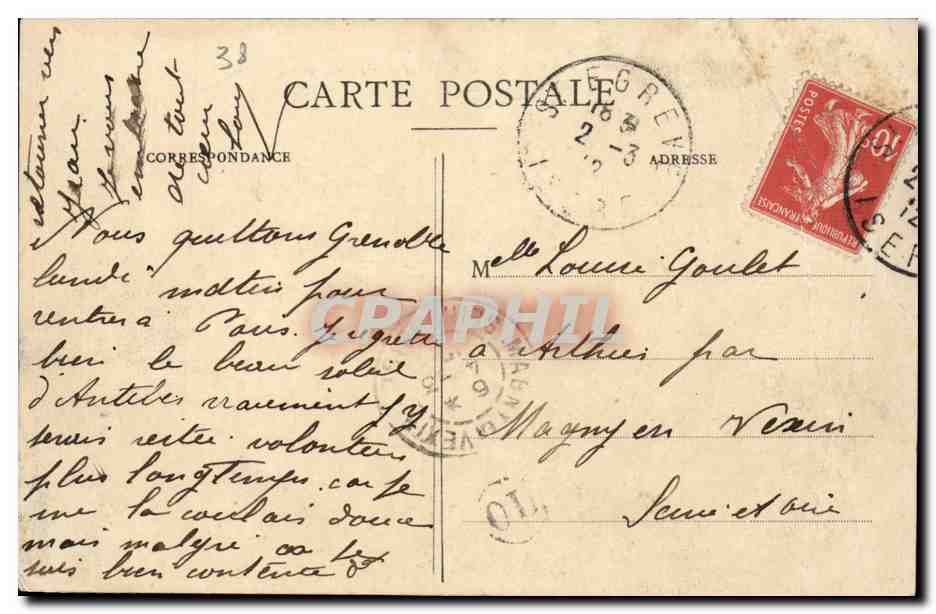 38
CARTE POSTALE
CORRESPONDANCE
ADRESSE
Nous quittons Grenoble
lundi matin pour
rentrer à Paris. Je regrette
bien le beau soleil
d'Antibes vraiment j'y
serais restée volontiers
plus longtemps car je
me la coulais douce
mais malgré ça je
suis bien contente de
retourner vers
Jean
Je vous
embrasse
de tout
cœur
Melle Louise Goulet
à Arthies par
Magny en Vexin
Seine et Oise
EGREVE
ISERE
2 - 3
12
10
POSTES
REPUBLIQUE FRANÇAISE
ISERE
12
MAGNY-EN-VEXIN
OL
CPAPHIL